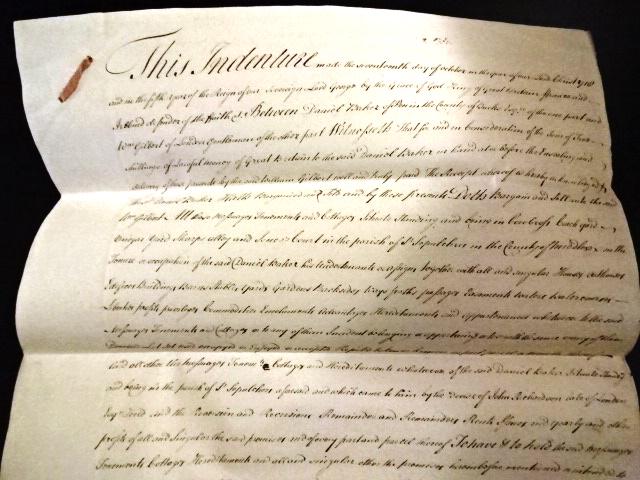 This Indenture made the seventeenth day of October in the year of our Lord Christ 1718
and in the fifth year of the Reign of our Sovereign Lord George by the Grace of God King of Great Britain France and
Ireland Defender of the Faith &c Between Daniel Baker of Penn in the County of Bucks Esqr of the one part and
Wm Gilbert of London Gentleman of the other part Witnesseth That for and in Consideration of the Sum of
shillings of Lawful money of Great Britain to the said Daniel Baker in hand at or before the Ensealing and
delivery of these presents by the said William Gilbert well and truly paid The Receipt whereof is hereby acknowledged
the said Daniel Baker Hath Bargained and Sold and by these presents Doth Bargain and Sell unto the said
Wm Gilbert All those Messuages Tenements and Cottages Scituate Standing and being in Cow Cross
Vinegar Yard Sharps Alley and Court in the parish of St Sepulchres in the County of Middlesex in the
Tenure or occupation of the said Daniel Baker his Undertenants or assigns together with all and singular Houses outhouses
Edifices Buildings Barns Stables Yards Gardens Backsides Ways paths passages Easements waters watercourses
profits priviledges Commodities Emoluments Advantages Hereditaments and appurtenances whatsoever to the said
Messuages Tenements and Cottages or to any of them Incident or belonging or appertaining or to or with the same
and all other the Messuages Tenements Cottages and Hereditaments whatsoever of the said Daniel Baker Scituate standing
and being in the parish of St Sepulchres aforesaid and which came to him by the devise of John Richardson late of London
Esqr decd And the Reversion and Reversions Remainder and Remainders Rents Issues and yearly and other
profits of all and Singular the said premises and of every part and parcel thereof To have & to hold the said Messuages
Tenements Cottages Hereditaments and all and singular other the premises hereinbefore mentioned